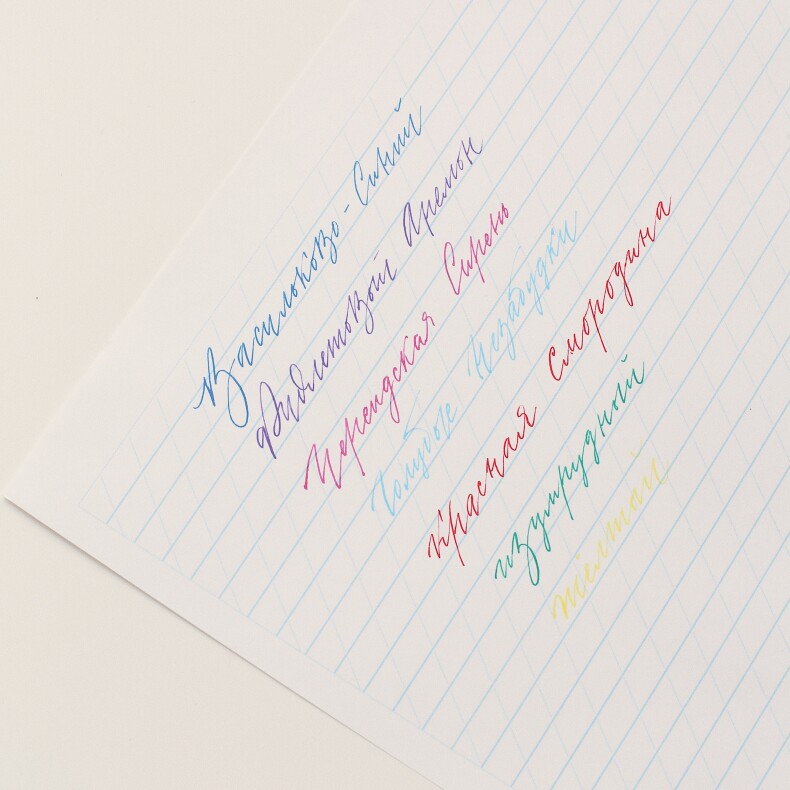 Васильково-Синий
Фиолетовый
Сирень
Голубые Незабудки
Красная Смородина
изумрудный
жёлтый